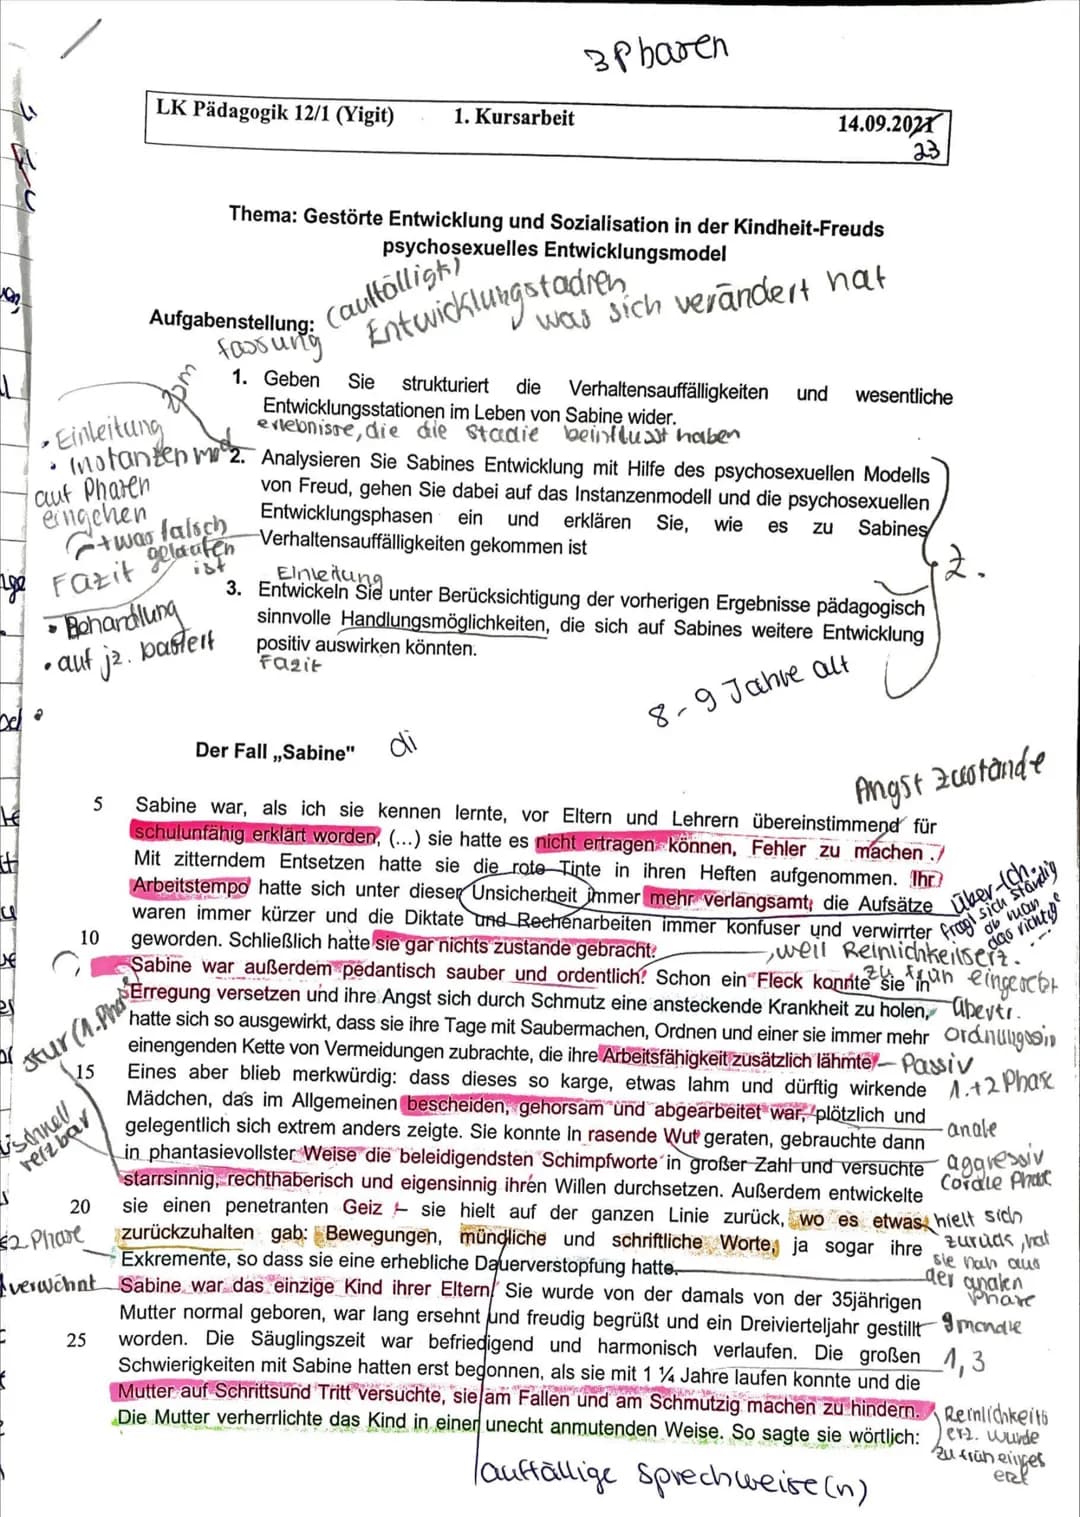 3 Phasen
LK Pädagogik 12/1 (Yigit) 1. Kursarbeit 14.09.2021
23
Thema: Gestörte Entwicklung und Sozialisation in der Kindheit-Freuds
psychosexuelles Entwicklungsmodel
(auffälligk)
Entwicklungstadien
was sich verändert hat
Aufgabenstellung:
fassung
1. Geben Sie strukturiert die Verhaltensauffälligkeiten und wesentliche
Entwicklungsstationen im Leben von Sabine wider.
erlebnisse, die die Stadie beinflusst haben
• Einleitung
• Instanzen
auf Phasen
eingehen
etwas falsch
gelaufen
ist
Fazit
2. Analysieren Sie Sabines Entwicklung mit Hilfe des psychosexuellen Modells
von Freud, gehen Sie dabei auf das Instanzenmodell und die psychosexuellen
Entwicklungsphasen ein und erklären Sie, wie es zu Sabines
Verhaltensauffälligkeiten gekommen ist
2.
Einleitung
3. Entwickeln Sie unter Berücksichtigung der vorherigen Ergebnisse pädagogisch
sinnvolle Handlungsmöglichkeiten, die sich auf Sabines weitere Entwicklung
positiv auswirken könnten.
Fazit
• Behandlung
• auf jz. basiert
8-9 Jahre alt
Der Fall „Sabine"
di
Angst zustände
5 Sabine war, als ich sie kennen lernte, vor Eltern und Lehrern übereinstimmend für
schulunfähig erklärt worden, (...) sie hatte es nicht ertragen können, Fehler zu machen.
Mit zitterndem Entsetzen hatte sie die rote Tinte in ihren Heften aufgenommen. Ihr
Arbeitstempo hatte sich unter dieser Unsicherheit immer mehr verlangsamt; die Aufsätze
waren immer kürzer und die Diktate und Rechenarbeiten immer konfuser und verwirrter
10 geworden. Schließlich hatte sie gar nichts zustande gebracht.
Sabine war außerdem pedantisch sauber und ordentlich. Schon ein Fleck konnte sie in
Erregung versetzen und ihre Angst sich durch Schmutz eine ansteckende Krankheit zu holen,
hatte sich so ausgewirkt, dass sie ihre Tage mit Saubermachen, Ordnen und einer sie immer mehr
einengenden Kette von Vermeidungen zubrachte, die ihre Arbeitsfähigkeit zusätzlich lähmte.
15 Eines aber blieb merkwürdig: dass dieses so karge, etwas lahm und dürftig wirkende
Mädchen, das im Allgemeinen bescheiden, gehorsam und abgearbeitet war, plötzlich und
gelegentlich sich extrem anders zeigte. Sie konnte In rasende Wut geraten, gebrauchte dann
in phantasievollster Weise die beleidigendsten Schimpfworte in großer Zahl und versuchte
starrsinnig, rechthaberisch und eigensinnig ihren Willen durchsetzen. Außerdem entwickelte
20 sie einen penetranten Geiz - sie hielt auf der ganzen Linie zurück, wo es etwas
zurückzuhalten gab: Bewegungen, mündliche und schriftliche Worte, ja sogar ihre
Exkremente, so dass sie eine erhebliche Dauerverstopfung hatte.
Sabine war das einzige Kind ihrer Eltern. Sie wurde von der damals von der 35jährigen
Mutter normal geboren, war lang ersehnt und freudig begrüßt und ein Dreivierteljahr gestillt
25 worden. Die Säuglingszeit war befriedigend und harmonisch verlaufen. Die großen
Schwierigkeiten mit Sabine hatten erst begonnen, als sie mit 1 ¼ Jahre laufen konnte und die
Mutter auf Schrittsund Tritt versuchte, sie am Fallen und am Schmutzig machen zu hindern.
Die Mutter verherrlichte das Kind in einer unecht anmutenden Weise. So sagte sie wörtlich:
Über-Ich.
fragt sich ständig
ob man
das richtig
weil Reinlichkeitserz.
zu früh eingesetzt
übertr.
Passiv
1.+2 Phase
anale
aggressiv
hielt sich
zurück, hat
sie nah aus
der analen
Phase
9 monate
1,3
Reinlichkeits
erz. wurde
zu früh einges
stur (1. Phase
schnell
reizbar
2 Phase
verwöhnt
auffällige Sprechweise(n)